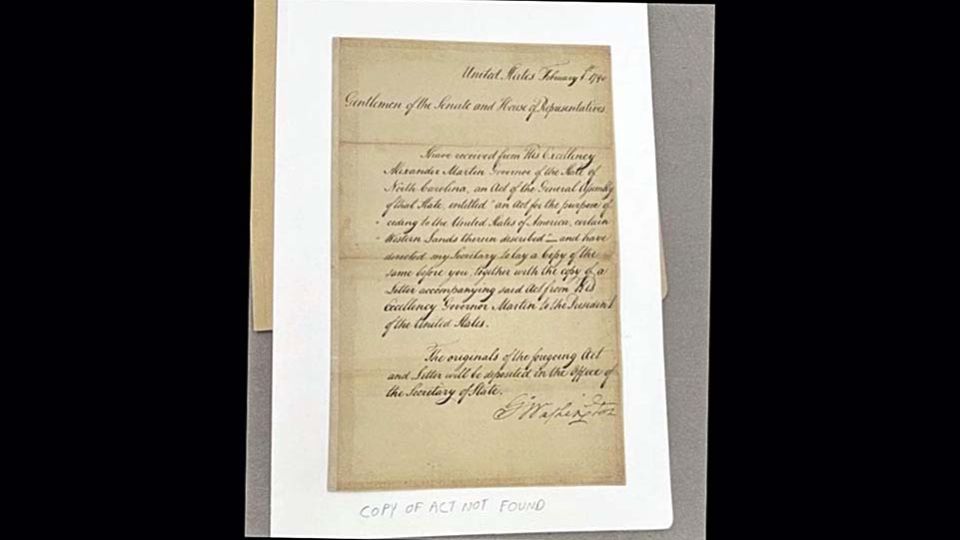 United States February 1st 1790
Gentlemen of the Senate and House of Representatives.
I have received from His Excellency
Alexander Martin Governor of the State of
North Carolina, an Act of the General Assembly
of that State, entitled "an Act for the purpose of
" ceding to the United States of America, certain
" Western Lands therein described"— and have
directed my Secretary to lay a Copy of the
same before you, together with the copy of a
Letter accompanying said Act from His
Excellency Governor Martin to the President
of the United States.
The originals of the foregoing Act
and Letter will be deposited in the Office of
the Secretary of State.
G:Washington
COPY OF ACT NOT FOUND